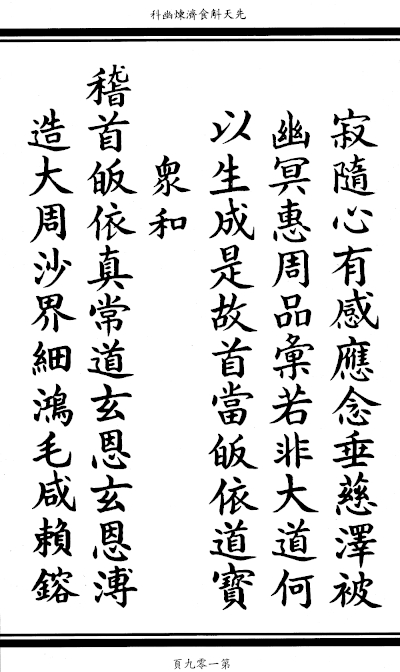 先天斛食濟煉幽科
寂隨心有感應念垂慈澤被
幽冥惠周品彙若非大道何
以生成是故首當皈依道寶
衆和
稽首皈依真常道玄恩玄恩溥
造大周沙界細鴻毛咸賴鎔
第一零九頁